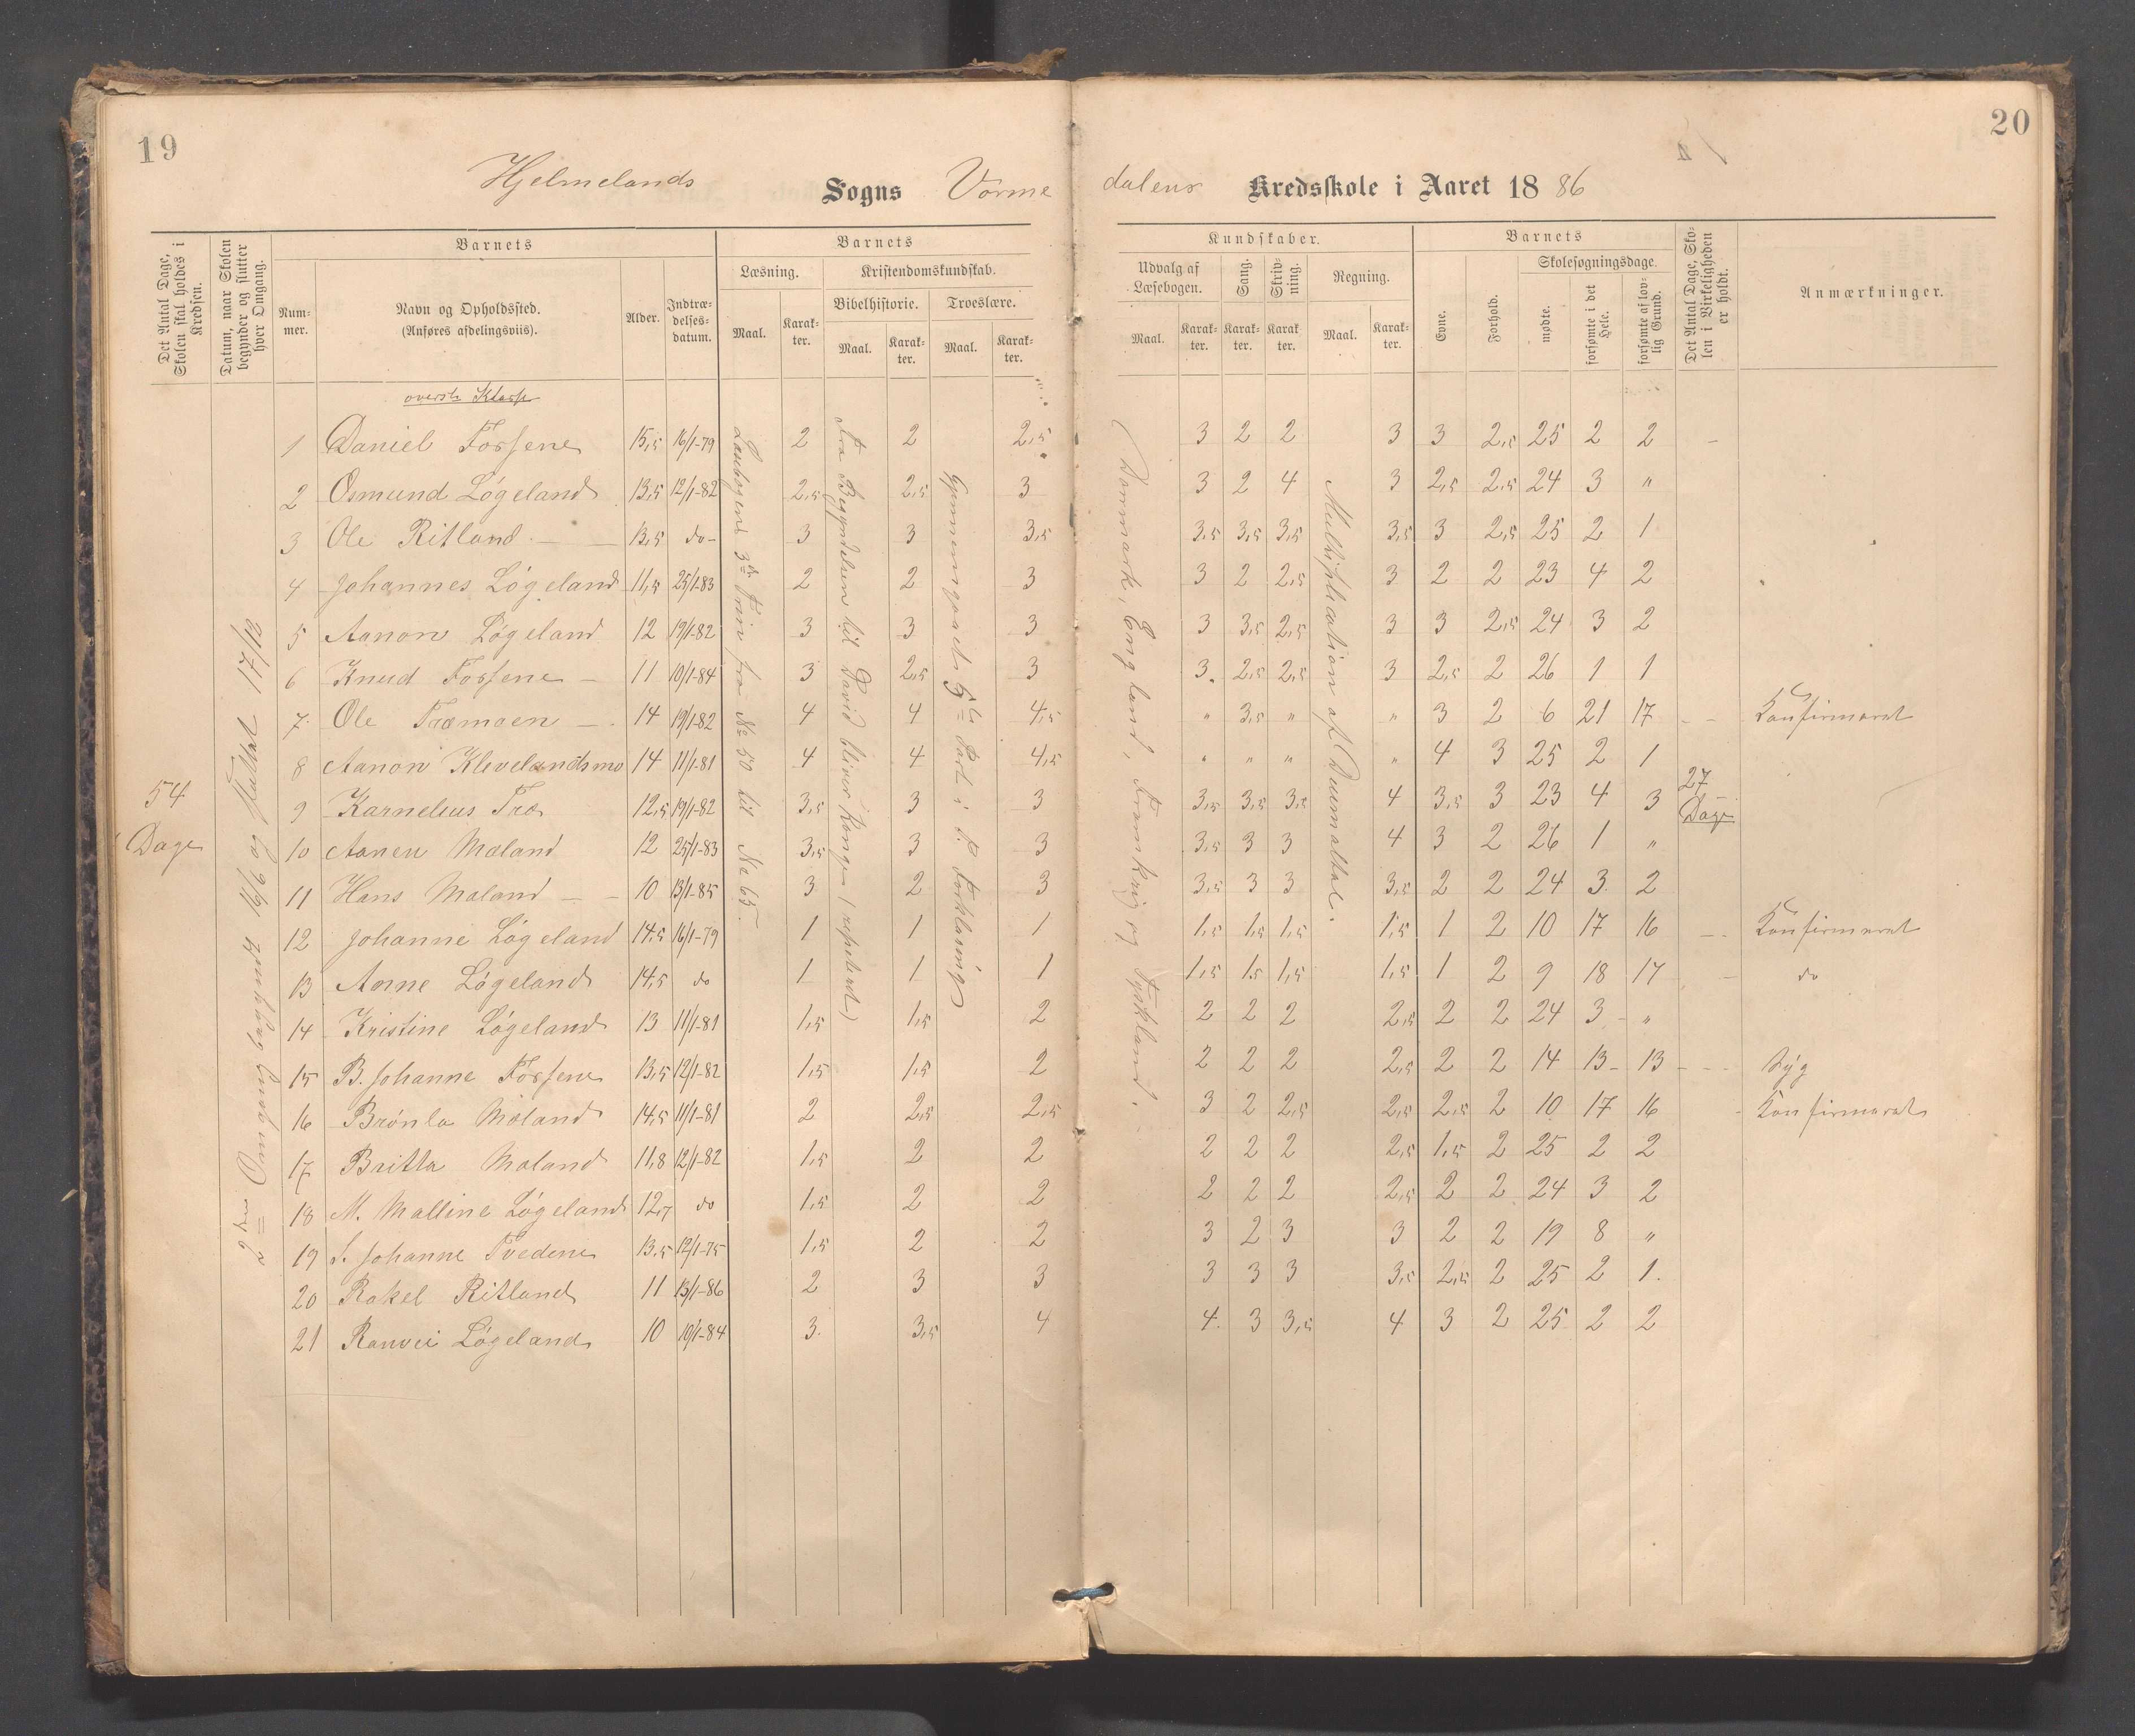 19
20
Hjelmelands Sogns Vormedalens Kredsskole i Aaret 1886
Det Antal Dage, Skolen skal holdes i Kredsen.
Datum, naar Skolen begynder og slutter hver Omgang.
Barnets
Nummer.
Navn og Opholdssted. (Anføres afdelingsviis).
Alder.
Indtrædelsesdatum.
Barnets
Læsning.
Maal.
Karakter.
Kristendomskundskab.
Bibelhistorie.
Maal.
Karakter.
Troeslære.
Maal.
Karakter.
Kundskaber.
Udvalg af Læsebogen.
Maal.
Karakter.
Sang.
Karakter.
Skrivning.
Karakter.
Regning.
Maal.
Karakter.
Barnets
Evne.
Forhold.
Skolesøgningsdage.
mødte.
forsømte i det Hele.
forsømte af lovlig Grund.
Det Antal Dage, Skolen i Virkeligheden er holdt.
Anmærkninger.
øverste Klasse
54 Dage
2den Omgang begyndt 16/6 og sluttet 17/12
Læsebogens 3die Trin fra No 50 til No 65.
Fra Begyndelsen til David bliver Konge (repeteret)
Gjennemgaaet 5te Part i P. Forklaring
Danmark, England, Frankrig og Tyskland.
Multiplication af Decimaltal.
27 Dage
1 Daniel Fossene 15,5 16/1-79 2 2 2,5 3 2 2 3 3 2,5 25 2 2 -
2 Osmund Løgeland 13,5 12/1-82 2,5 2,5 3 3 2 4 3 2,5 2,5 24 3 "
3 Ole Ritland 13,5 do- 3 3 3,5 3,5 3,5 3,5 3,5 3 2,5 25 2 1
4 Johannes Løgeland 11,5 25/1-83 2 2 3 3 2 2,5 3 2 2 23 4 2
5 Aanon Løgeland 12 19/1-82 3 3 3 3 3,5 2,5 3 3 2,5 24 3 2
6 Knud Fossene 11 10/1-84 3 2,5 3 3. 2,5 2,5 3 2,5 2 26 1 1
7. Ole Træmoen 14 19/1-82 4 4 4,5 " 3,5 " " 3 2 6 21 17 Konfirmeret
8 Aanon Klevelandsmo 14 11/1-81 4 4 4,5 " " " " 4 3 25 2 1
9 Karnelius Træ 12,5 19/1-82 3,5 3 3 3,5 3,5 3,5 4 3,5 3 23 4 3
10 Aanen Moland 12 25/1-83 3,5 3 3 3,5 3 3 4 3 2 26 1 "
11 Hans Moland 10 13/1-85 3 2 3 3,5 3 3 3,5 2 2 24 3 2
12 Johanne Løgeland 14,5 16/1-79 1 1 1 1,5 1,5 1,5 1,5 1 2 10 17 16 Konfirmeret
13 Anne Løgeland 14,5 do 1 1 1 1,5 1,5 1,5 1,5 1 2 9 18 17 do
14 Kristine Løgeland 13 11/1-81 1,5 1,5 2 2 2 2 2,5 2 2 24 3 "
15 B. Johanne Fossene 13,5 12/1-82 1,5 1,5 2 2 2 2 2,5 2 2 14 13 13 Syg
16 Brønla Moland 14,5 11/1-81 2 2,5 2,5 3 2 2,5 2,5 2,5 2 10 17 16 Konfirmeret
17 Britta Moland 11,8 12/1-82 1,5 2 2 2 2 2 2,5 1,5 2 25 2 2
18 M. Malline Løgeland 12,7 do 1,5 2 2 2 2 2 2,5 2 2 24 3 2
19 S. Johanne Tvedene 13,5 12/1-75 1,5 2 2 3 2 3 3 2 2 19 8 "
20 Rakel Ritland 11 13/1-86 2 3 3 3 3 3 3,5 2,5 2 25 2 1.
21 Ranvei Løgeland 10 10/1-84 3. 3,5 4 4. 3 3,5 4 3 2 25 2 2